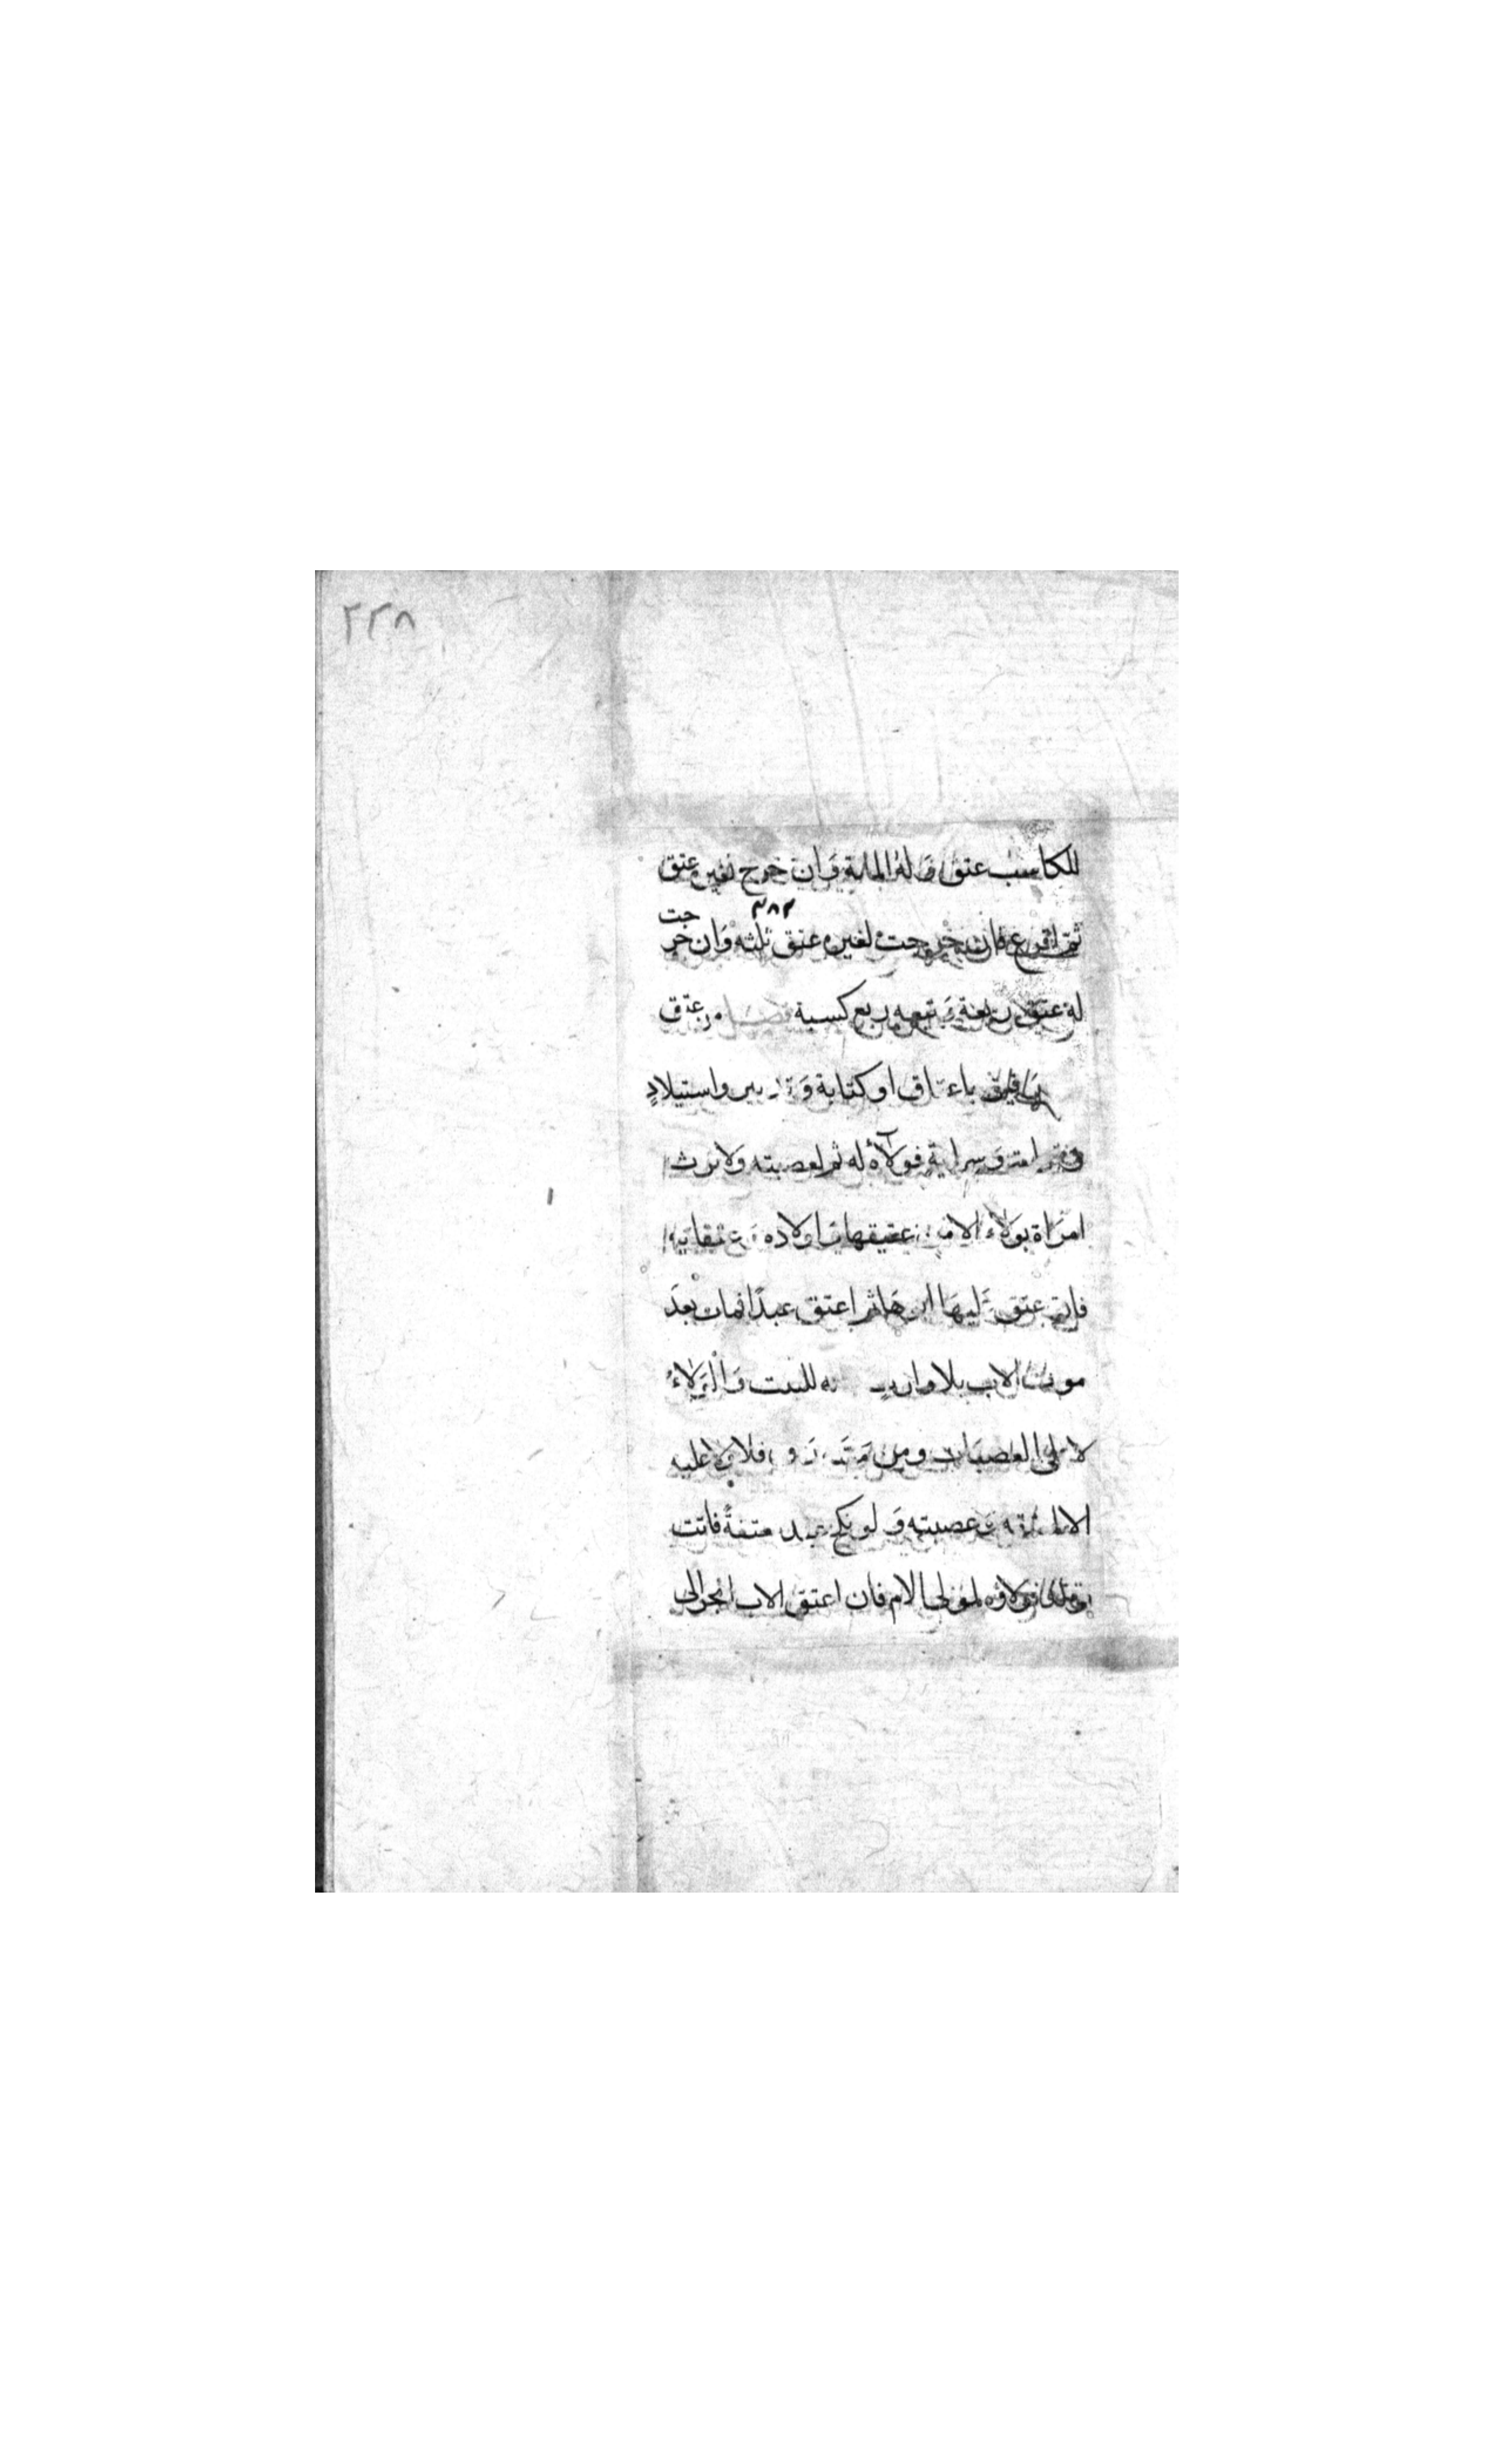 ٢٢٨
للكاسب عتق وله المائة وان خرج لغيره عتق
ثم اقرع فان خرجت لغيره عتق ثلثه وان خرجت
٣٨٢
له عتق ربعه وتبعه ربع كسبه فصل من عتق
باعتاق او كتابة و واستيلادٍ
وسراية فولاؤه له ثم لعصبته ولا ترث
امراة بولاء الا من عتيقها واولاده وعتقائه
فان عتق عليها ابوها ثم اعتق عبدًا فمات بعدَ
موت الاب بلا وارث للبنت والولاءُ
لاعلى العصبات ومن فلا ولا عليه
الا وعصبته ولو نكح عبد معتقةً فاتت
بولد فولاؤه لمولى الام فان اعتق الاب انجر الى